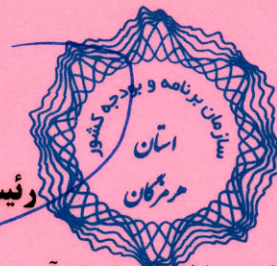 سازمان برنامه و بودجه کشور
استان
هرمزگان
رئیس